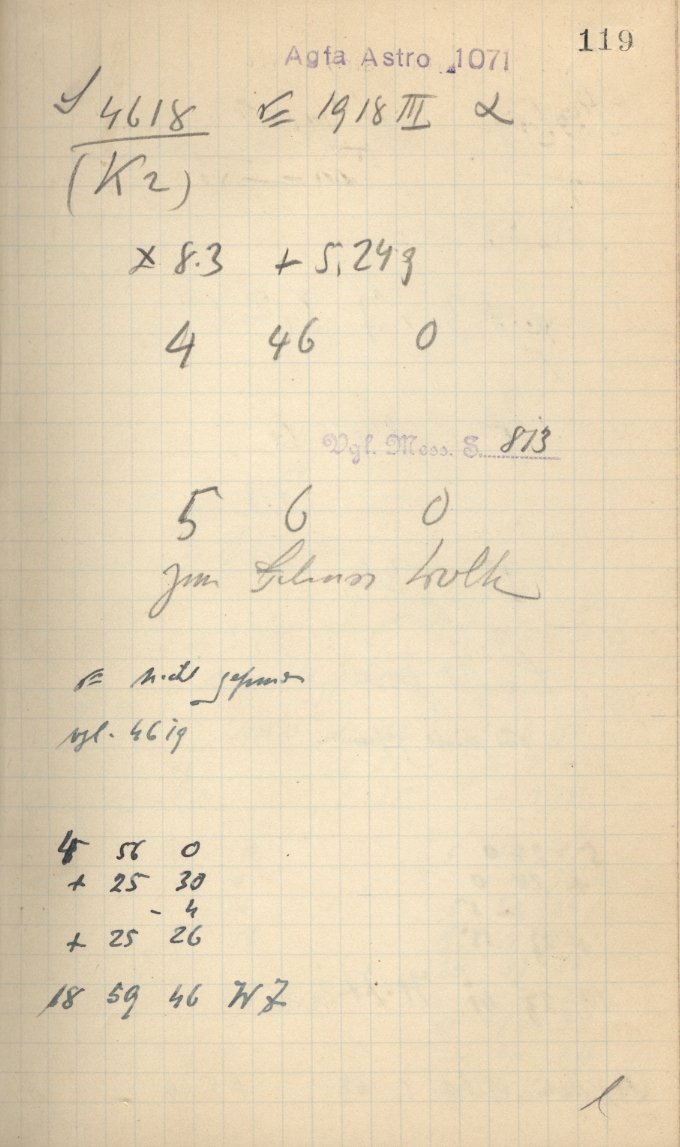 119
Agfa Astro 1071
S 4618 1918 III α
(K2)
× 8.3 + 5,249
4 46 0
Vgl. Mess. S. 873
5 6 0
zum Schluss Wolk
nicht gefunden
vgl. 4619
4 56 0
+ 25 30
- 4
+ 25 26
18 59 46 WZ